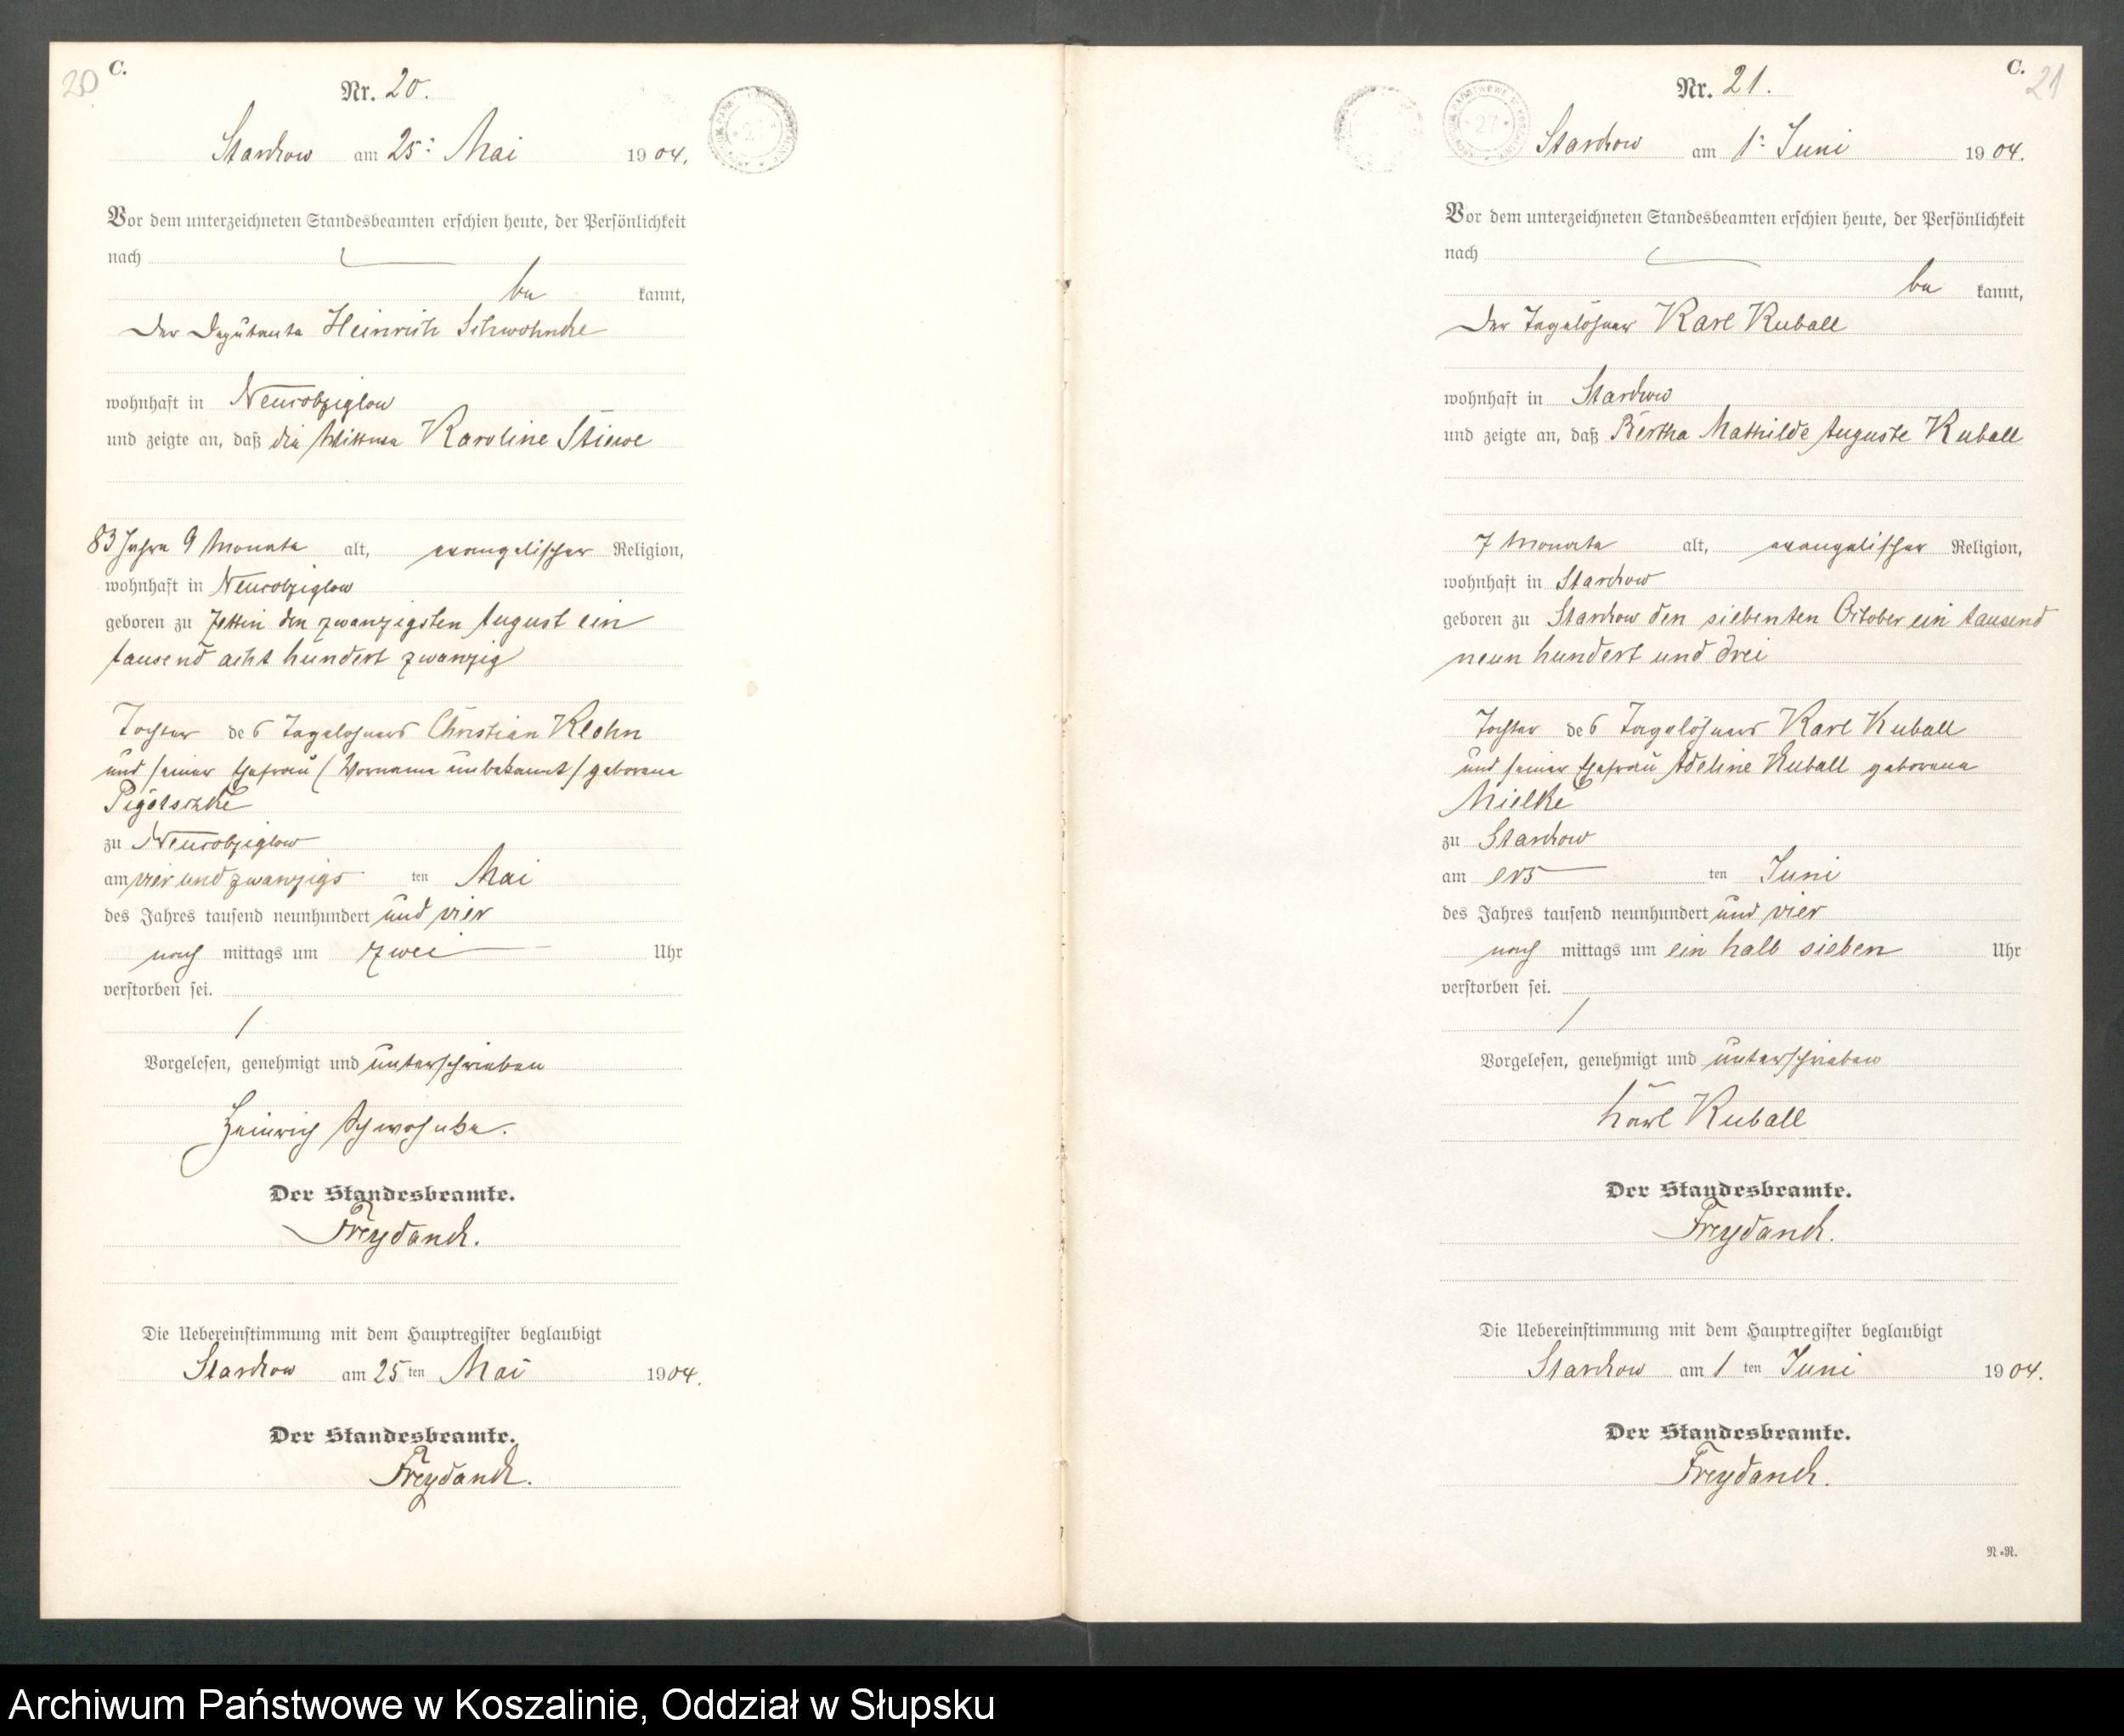 20
C.
Nr. 20.
Starkow am 25ten Mai 1904.
Vor dem unterzeichneten Standesbeamten erschien heute, der Persönlichkeit
nach
be kannt,
der Deputante Heinrich Schwohnke
wohnhaft in Neurobziglow
und zeigte an, daß die Wittwe Karoline Stiewe
83 Jahre 9 Monate alt, evangelischer Religion,
wohnhaft in Neurobziglow
geboren zu Zettin den zwanzigsten August ein
tausend acht hundert zwanzig
Tochter des Tagelöhners Christian Klohn
und seiner Ehefrau (Vorname unbekannt) geborene
zu Neurobziglow
am vier und zwanzigs ten Mai
des Jahres tausend neunhundert und vier
nach mittags um zwei Uhr
verstorben sei.
Vorgelesen, genehmigt und unterschrieben
Heinrich Schwohnke.
Der Standesbeamte.
Freydanck.
Die Uebereinstimmung mit dem Hauptregister beglaubigt
am 25 ten Mai 1904.
Der Standesbeamte.
Freydanck.
C.
21
Nr. 21.
am 1: Juni 1904.
Vor dem unterzeichneten Standesbeamten erschien heute, der Persönlichkeit
nach
be kannt,
der Tagelöhner Karl Kuball
wohnhaft in
und zeigte an, daß Bertha Mathilde Auguste Kuball
7 Monate alt, evangelischer Religion,
wohnhaft in
geboren zu den siebenten October ein tausend
neun hundert und drei
Tochter des Tagelöhners Karl Kuball
und seiner Ehefrau Adeline Kuball geborene
Mielke
zu
am ers ten Juni
des Jahres tausend neunhundert und vier
nach mittags um ein halb sieben Uhr
verstorben sei.
Vorgelesen, genehmigt und unterschrieben
Karl Kuball
Der Standesbeamte.
Freydanck.
Die Uebereinstimmung mit dem Hauptregister beglaubigt
am 1 ten Juni 1904.
Der Standesbeamte.
Freydanck.
N.=R.
Archiwum Państwowe w Koszalinie, Oddział w Słupsku